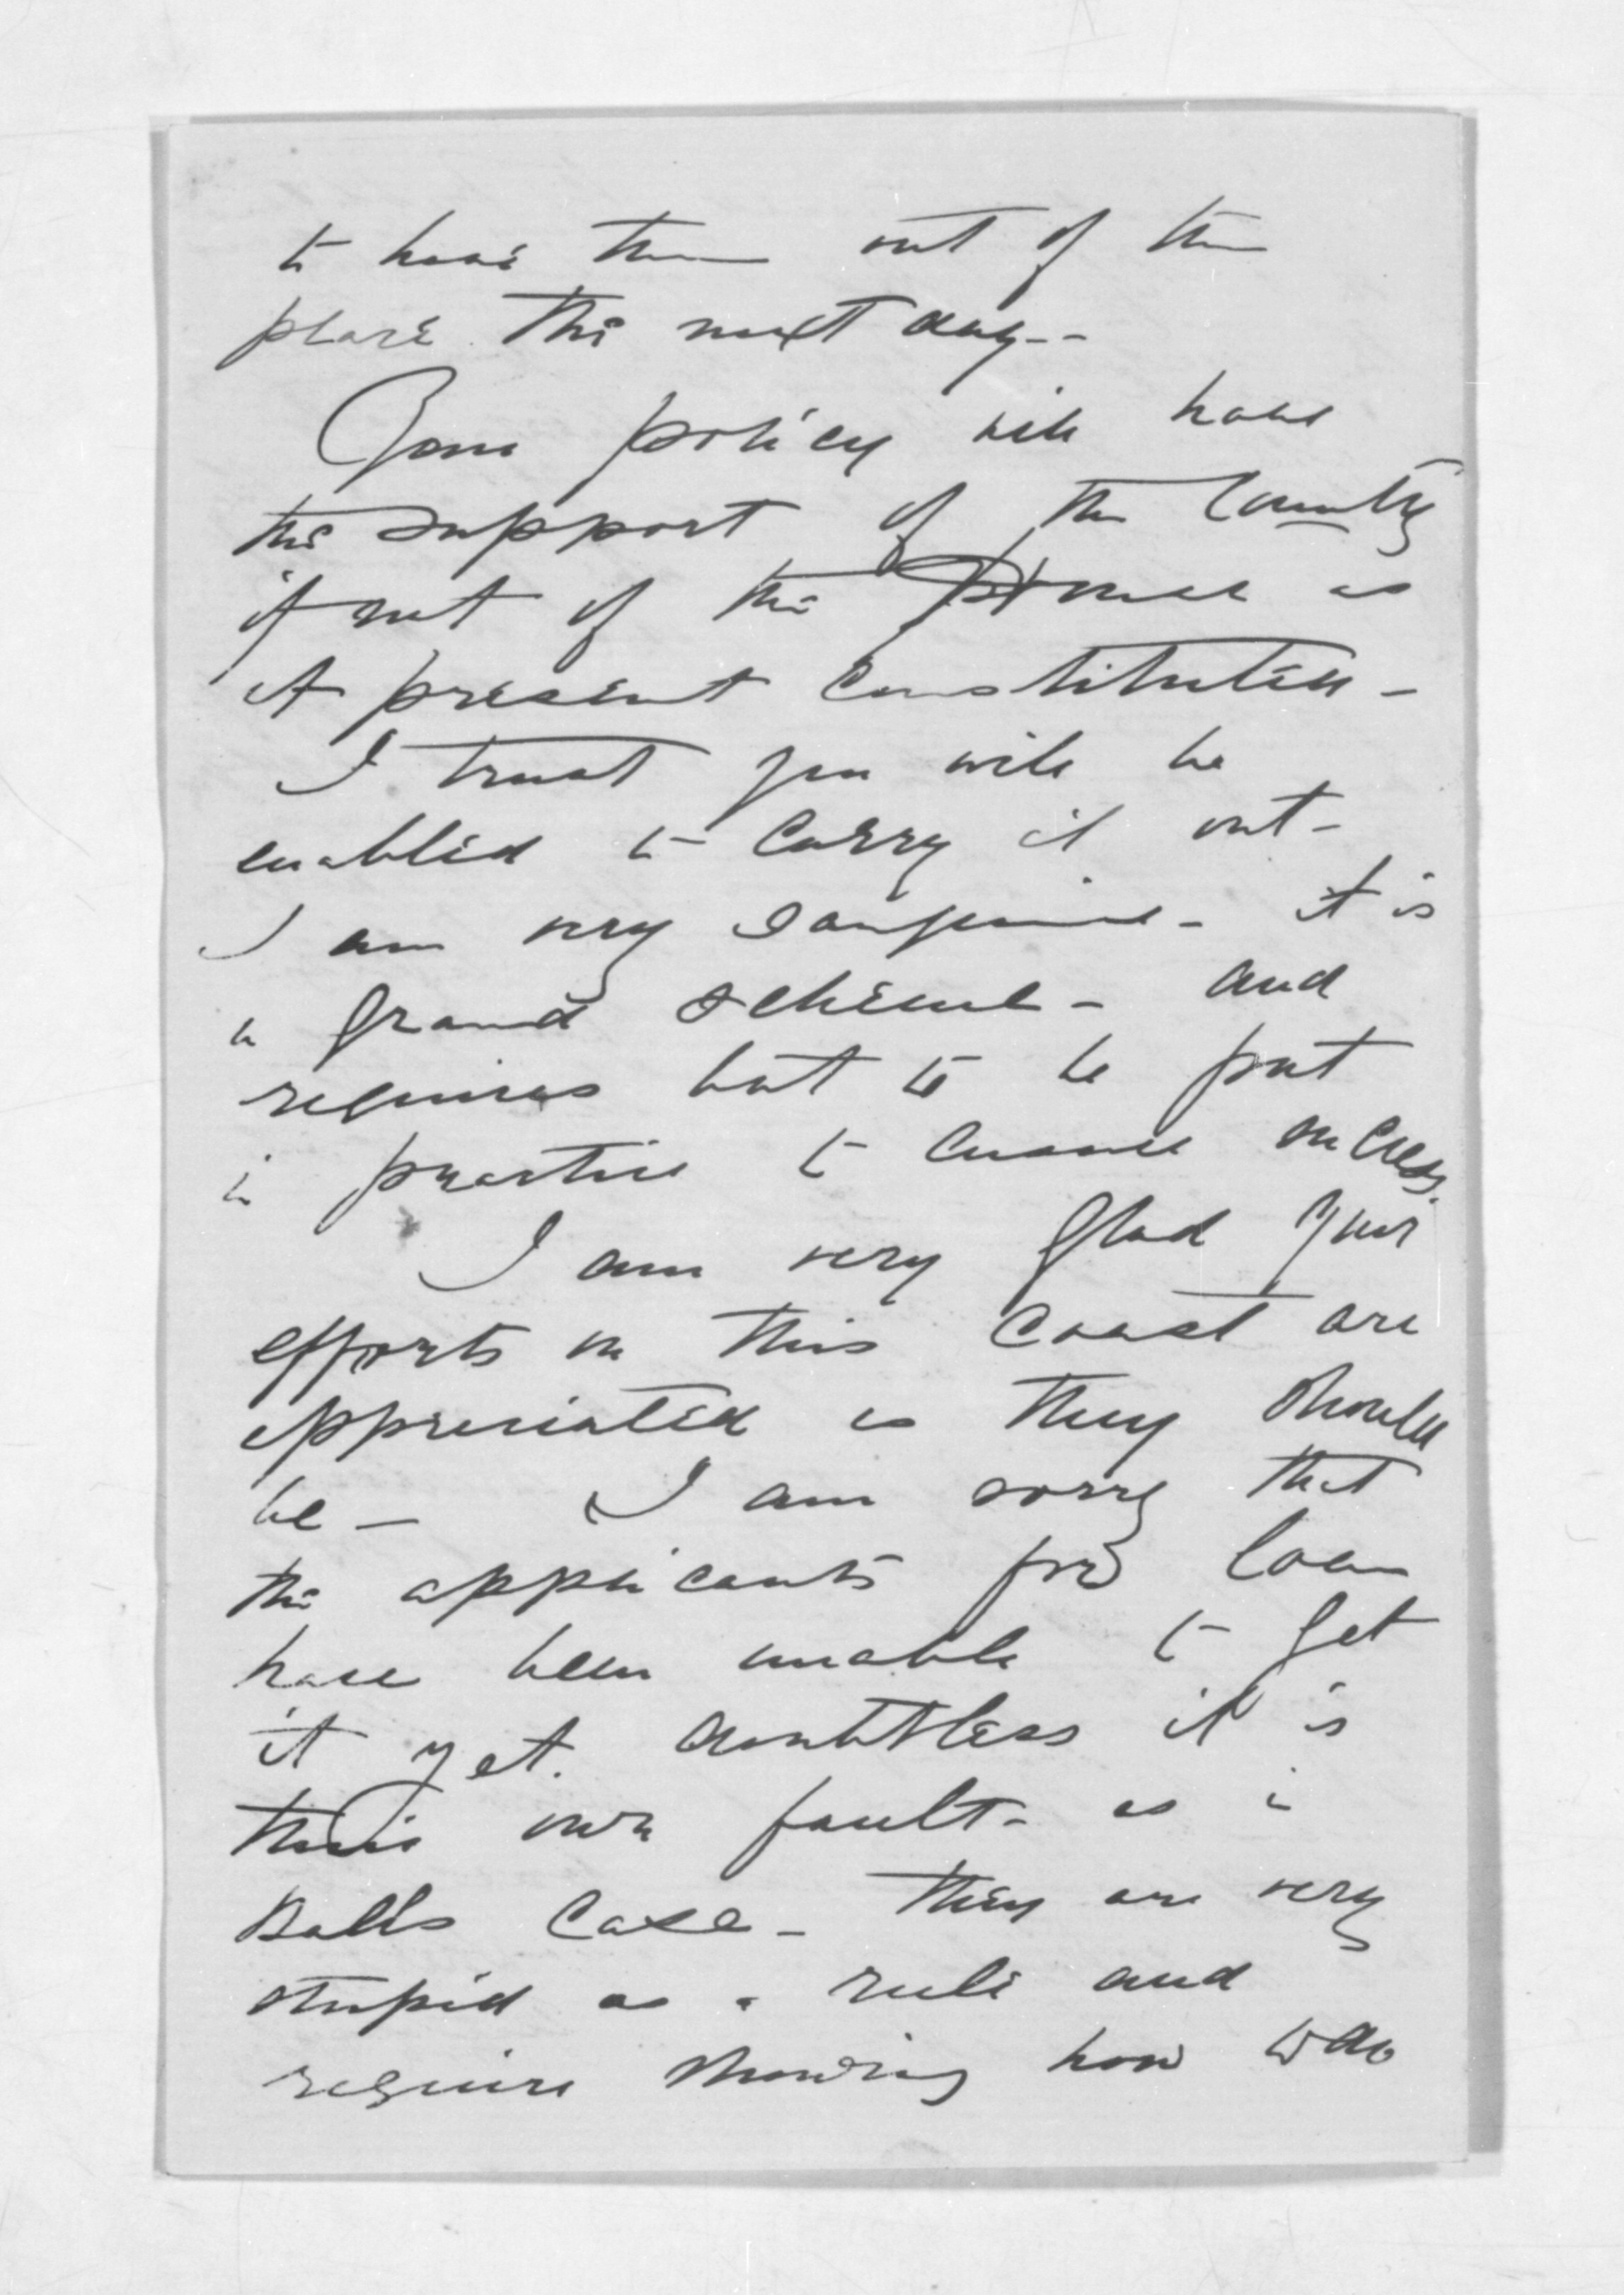 to have them out of the
place the next day--
Your policy will have
the support of the Country
if not of the House as
at present Constituted -
I trust you will be
enabled to carry it out -
I am very sanguine - it is
a grand scheme - and
requires but to be put
in practice to ensure success.
I am very glad your
efforts on this Coast are
appreciated as they should
be - I am sorry that
the applicants for loan
have been unable to get
it yet. doubtless it is
their own fault - as in
Balls Case - They are very
stupid as a rule and
require showing how to do